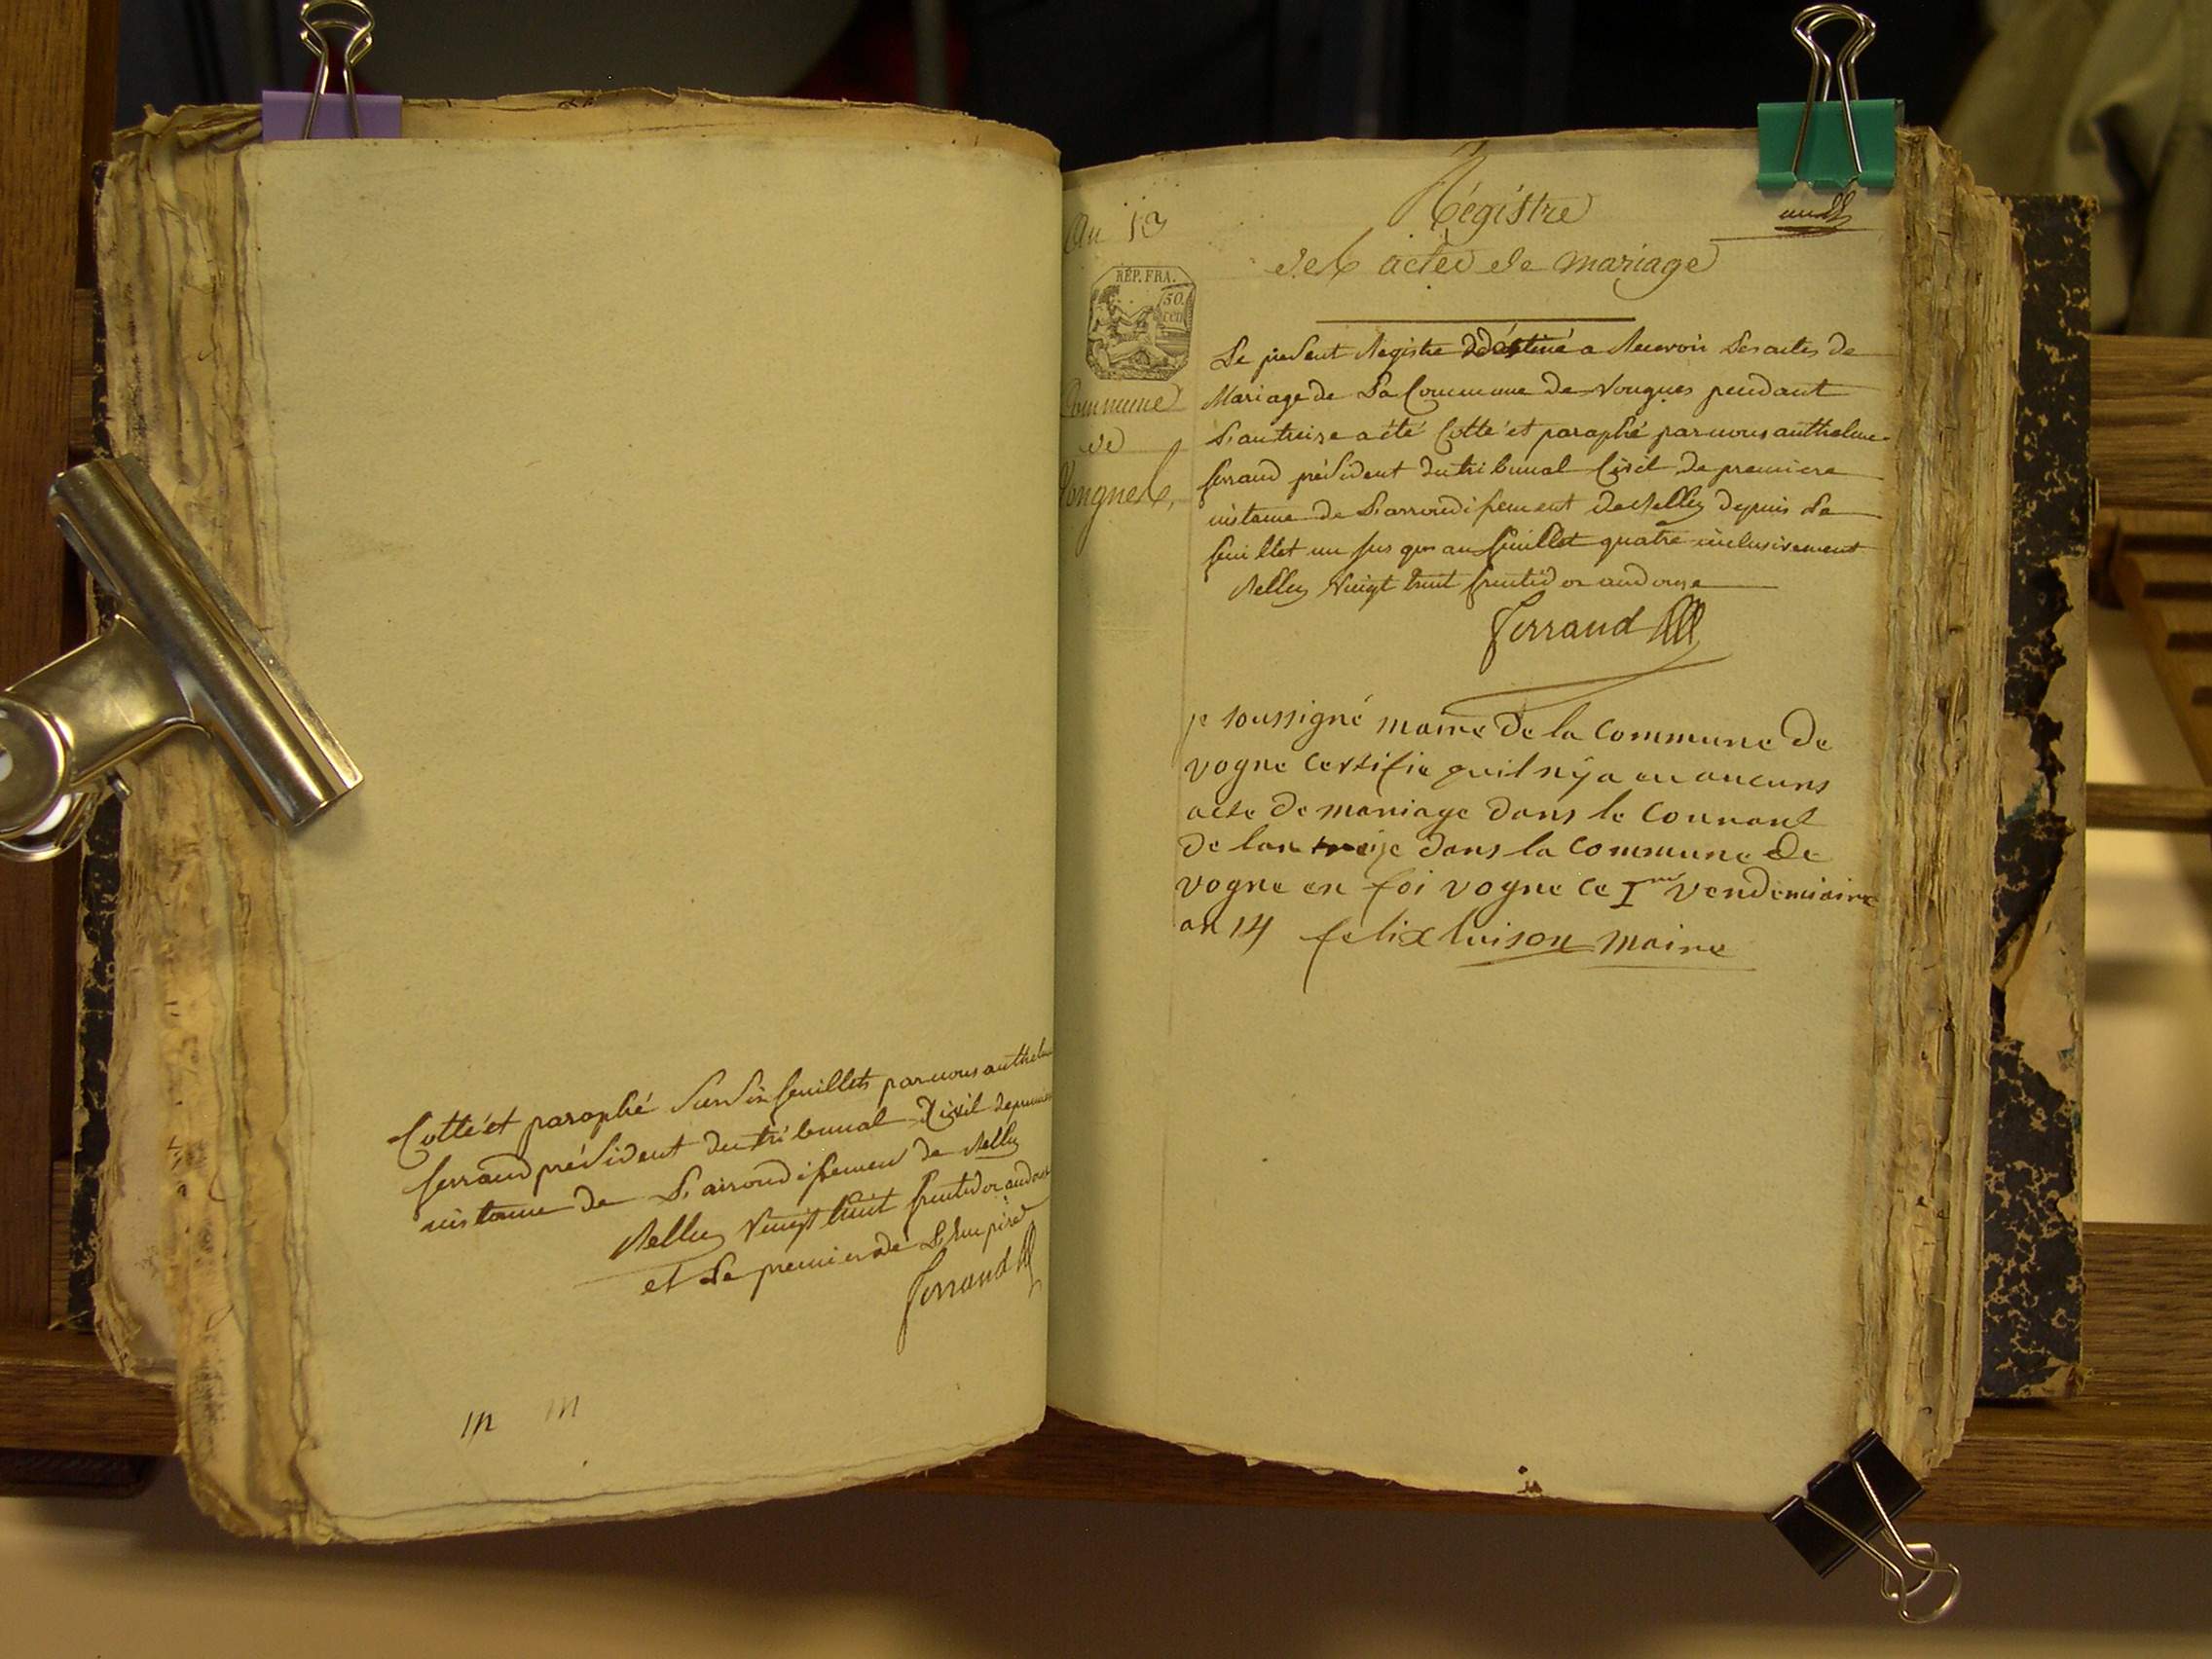 Cotté et paraphé sur six feuillets par nous anthelme
ferrand président du tribunal Civil de premiere
instance de L'arrondissement de Belley
Belley Vingt huit fructidor an douze
et Le premier de L'Empire
ferrand
m m
An 13
REP. FRA.
50.
cen
Commune
de
Vongnes,
Régistre
des actes de mariage
un
Le present Registre déstiné a Recevoir Les actes de
Mariage de La Commune de Vongnes pendant
L'an treize a été Cotté et paraphé par nous anthelme
ferrand président du tribunal Civil de premiere
instance de L'arrondissement de Belley Depuis Le
feuillet un jus qu'au feuillet quatre inclusivement
Belley Vingt huit fructidor an douze
ferrand
je soussigné maire de la Commune de
vogne Certifie quil n'y a eu aucuns
acte de mariage dans le Courant
de lan treize dans la Commune de
vogne en foi vogne ce I me vendemiaire
an 14 felix luison maire